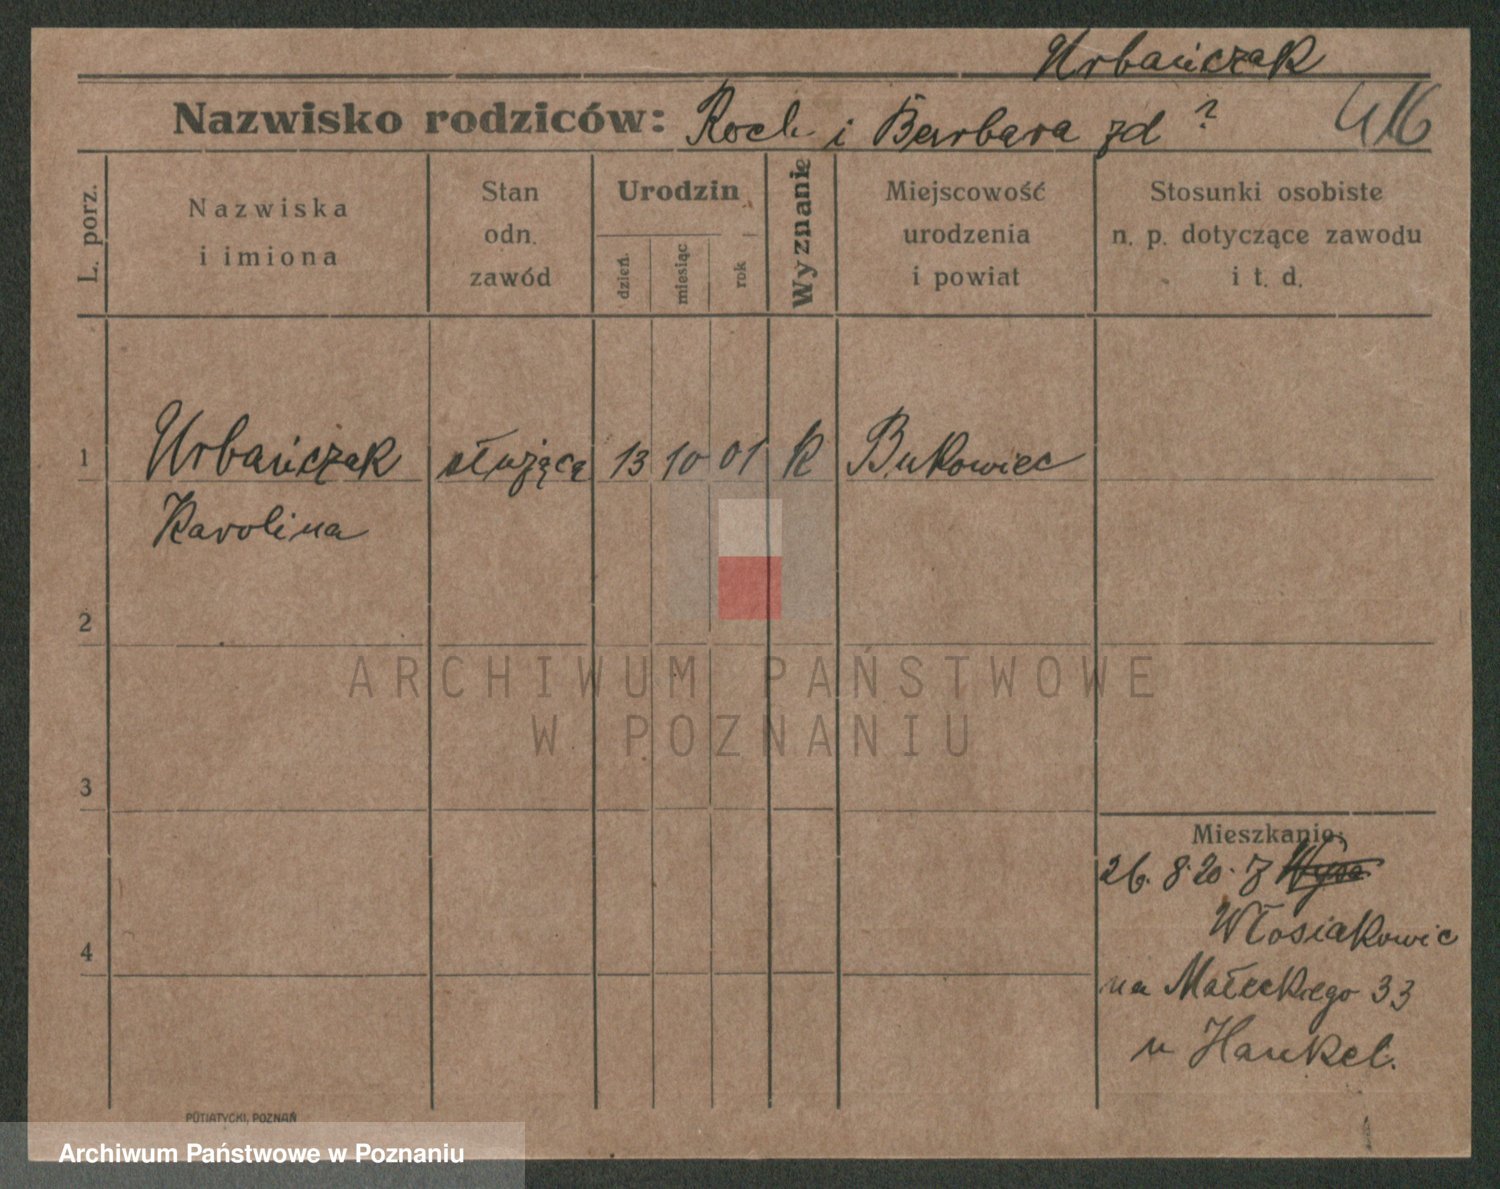 Urbańczak
Nazwisko rodziców: Roch i Barbara zd ?
416
L. porz.
Nazwiska
i imiona
Stan
odn.
zawód
Urodzin
dzień.
miesiąc
rok
Wyznanie
Miejscowość
urodzenia
i powiat
Stosunki osobiste
n. p. dotyczące zawodu
i t. d.
1 Urbańczak służąca 13 10 01 K Bukowiec
Karolina
2
3
4
Mieszkanie:
26. 8. 20. z
Włosiakowic
na Małeckiego 33
u Hankel.
PUTIATYCKI, POZNAŃ
ARCHIWUM PAŃSTWOWE
W POZNANIU
Archiwum Państwowe w Poznaniu